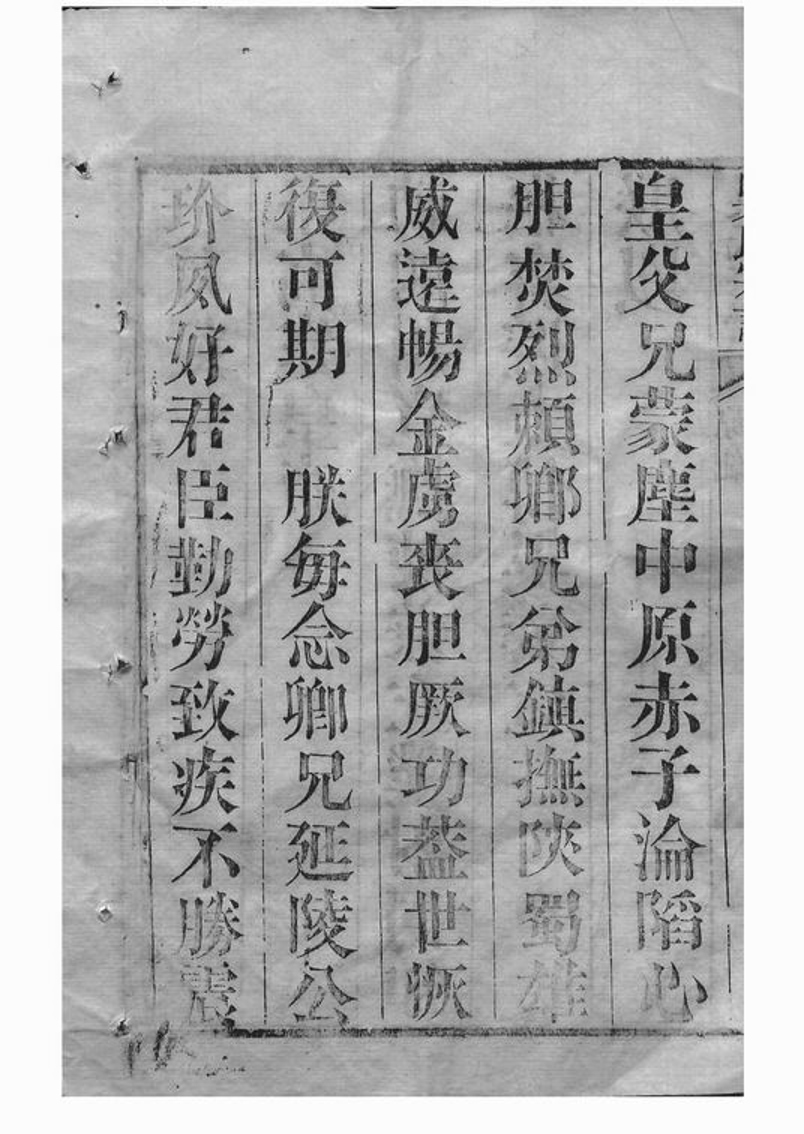 皇父兄蒙塵中原赤子淪陷心
胆焚烈頼鄉兄弟鎮撫陝蜀雄
威遠暢金虜喪胆厥功蓋世恢
復可期 朕每念卿兄延陵公
玠夙好君臣勤勞致疾不勝震